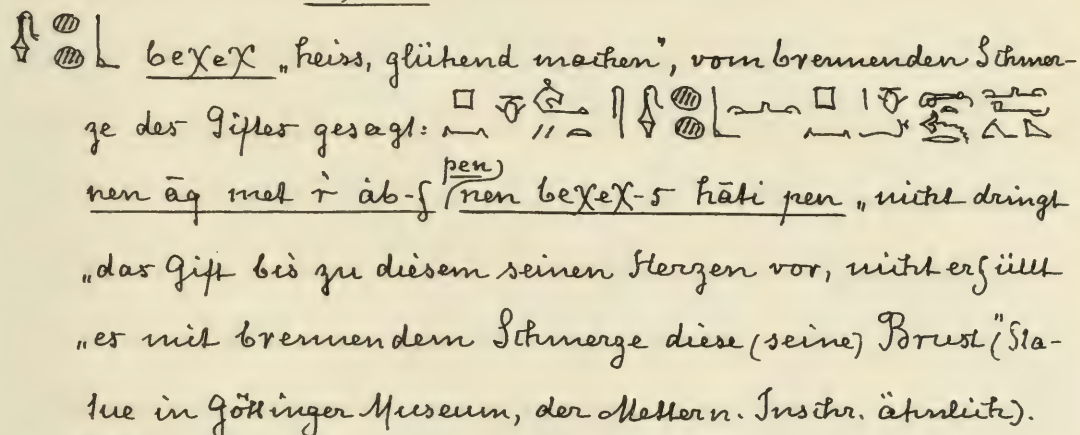 beχeχ „heiss, glühend machen", vom brennenden Schmer-
ze des Giftes gesagt:
nen āq met r àb-f pen nen beχeχ-s hāti pen „nicht dringt
„das Gift bis zu diesem seinen Herzen vor, nicht erfüllt
„es mit brennendem Schmerze diese (seine) Brust" (Sta-
tue in Göttinger Museum, der Mettern. Inschr. ähnlich).